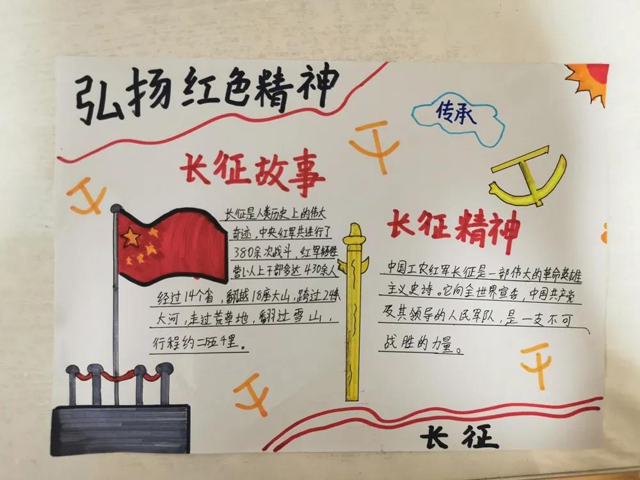 弘扬红色精神
传承
长征故事
长征是人类历史上的伟大
奇迹,中央红军共进行了
380余次战斗,红军牺牲
营以上干部多达430余人
经过14个省,翻越18座大山,跨过24条
大河,走过荒草地,翻过雪山,
行程约二万五千里。
长征精神
中国工农红军长征是一部伟大的革命英雄
主义史诗。它向全世界宣告,中国共产党
及其领导的人民军队,是一支不可
战胜的力量。
长征